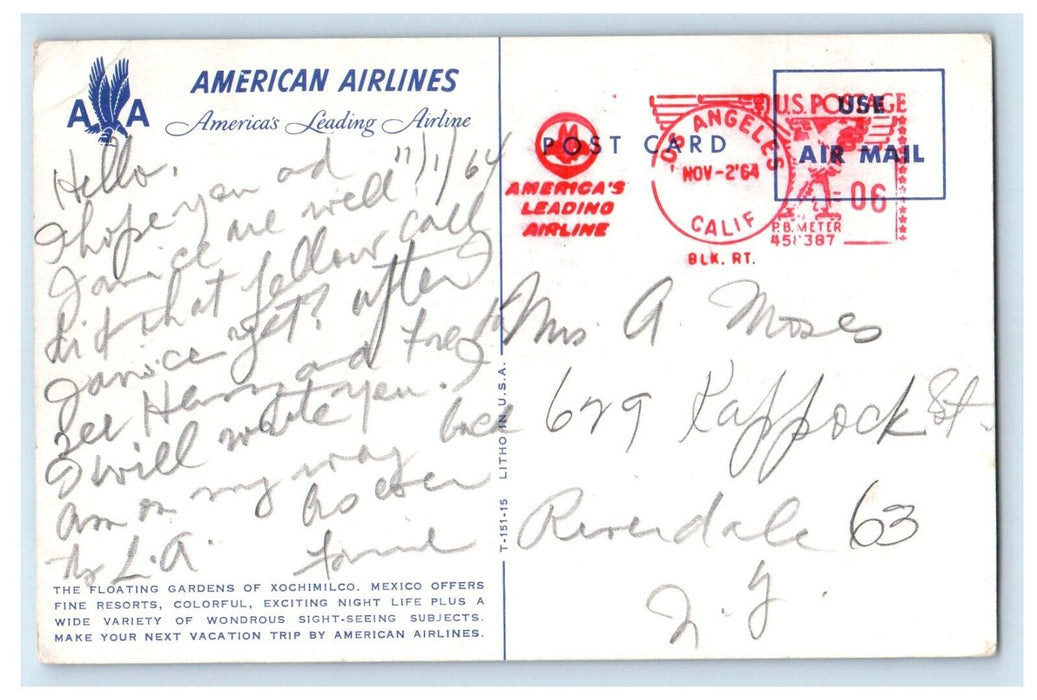 AMERICAN AIRLINES
A A
America's Leading Airline
Hello, 11/1/64
I hope you ad
Janice are well?
Did that fellow call
Janice yet? after I
see Harry and Fred
I will write you. I
Am on my way back
to L.A. As ever
THE FLOATING GARDENS OF XOCHIMILCO. MEXICO OFFERS
FINE RESORTS, COLORFUL, EXCITING NIGHT LIFE PLUS A
WIDE VARIETY OF WONDROUS SIGHT-SEEING SUBJECTS.
MAKE YOUR NEXT VACATION TRIP BY AMERICAN AIRLINES.
T-151-15 LITHO IN U.S.A.
POST CARD
AMERICA'S
LEADING
AIRLINE
LOS ANGELES
NOV-2'64
CALIF
BLK. RT.
U.S. POSTAGE
06
P.B. METER
458387
USE
AIR MAIL
Mrs. A Moses
629 Kappock St.
Riverdale 63
N.Y.